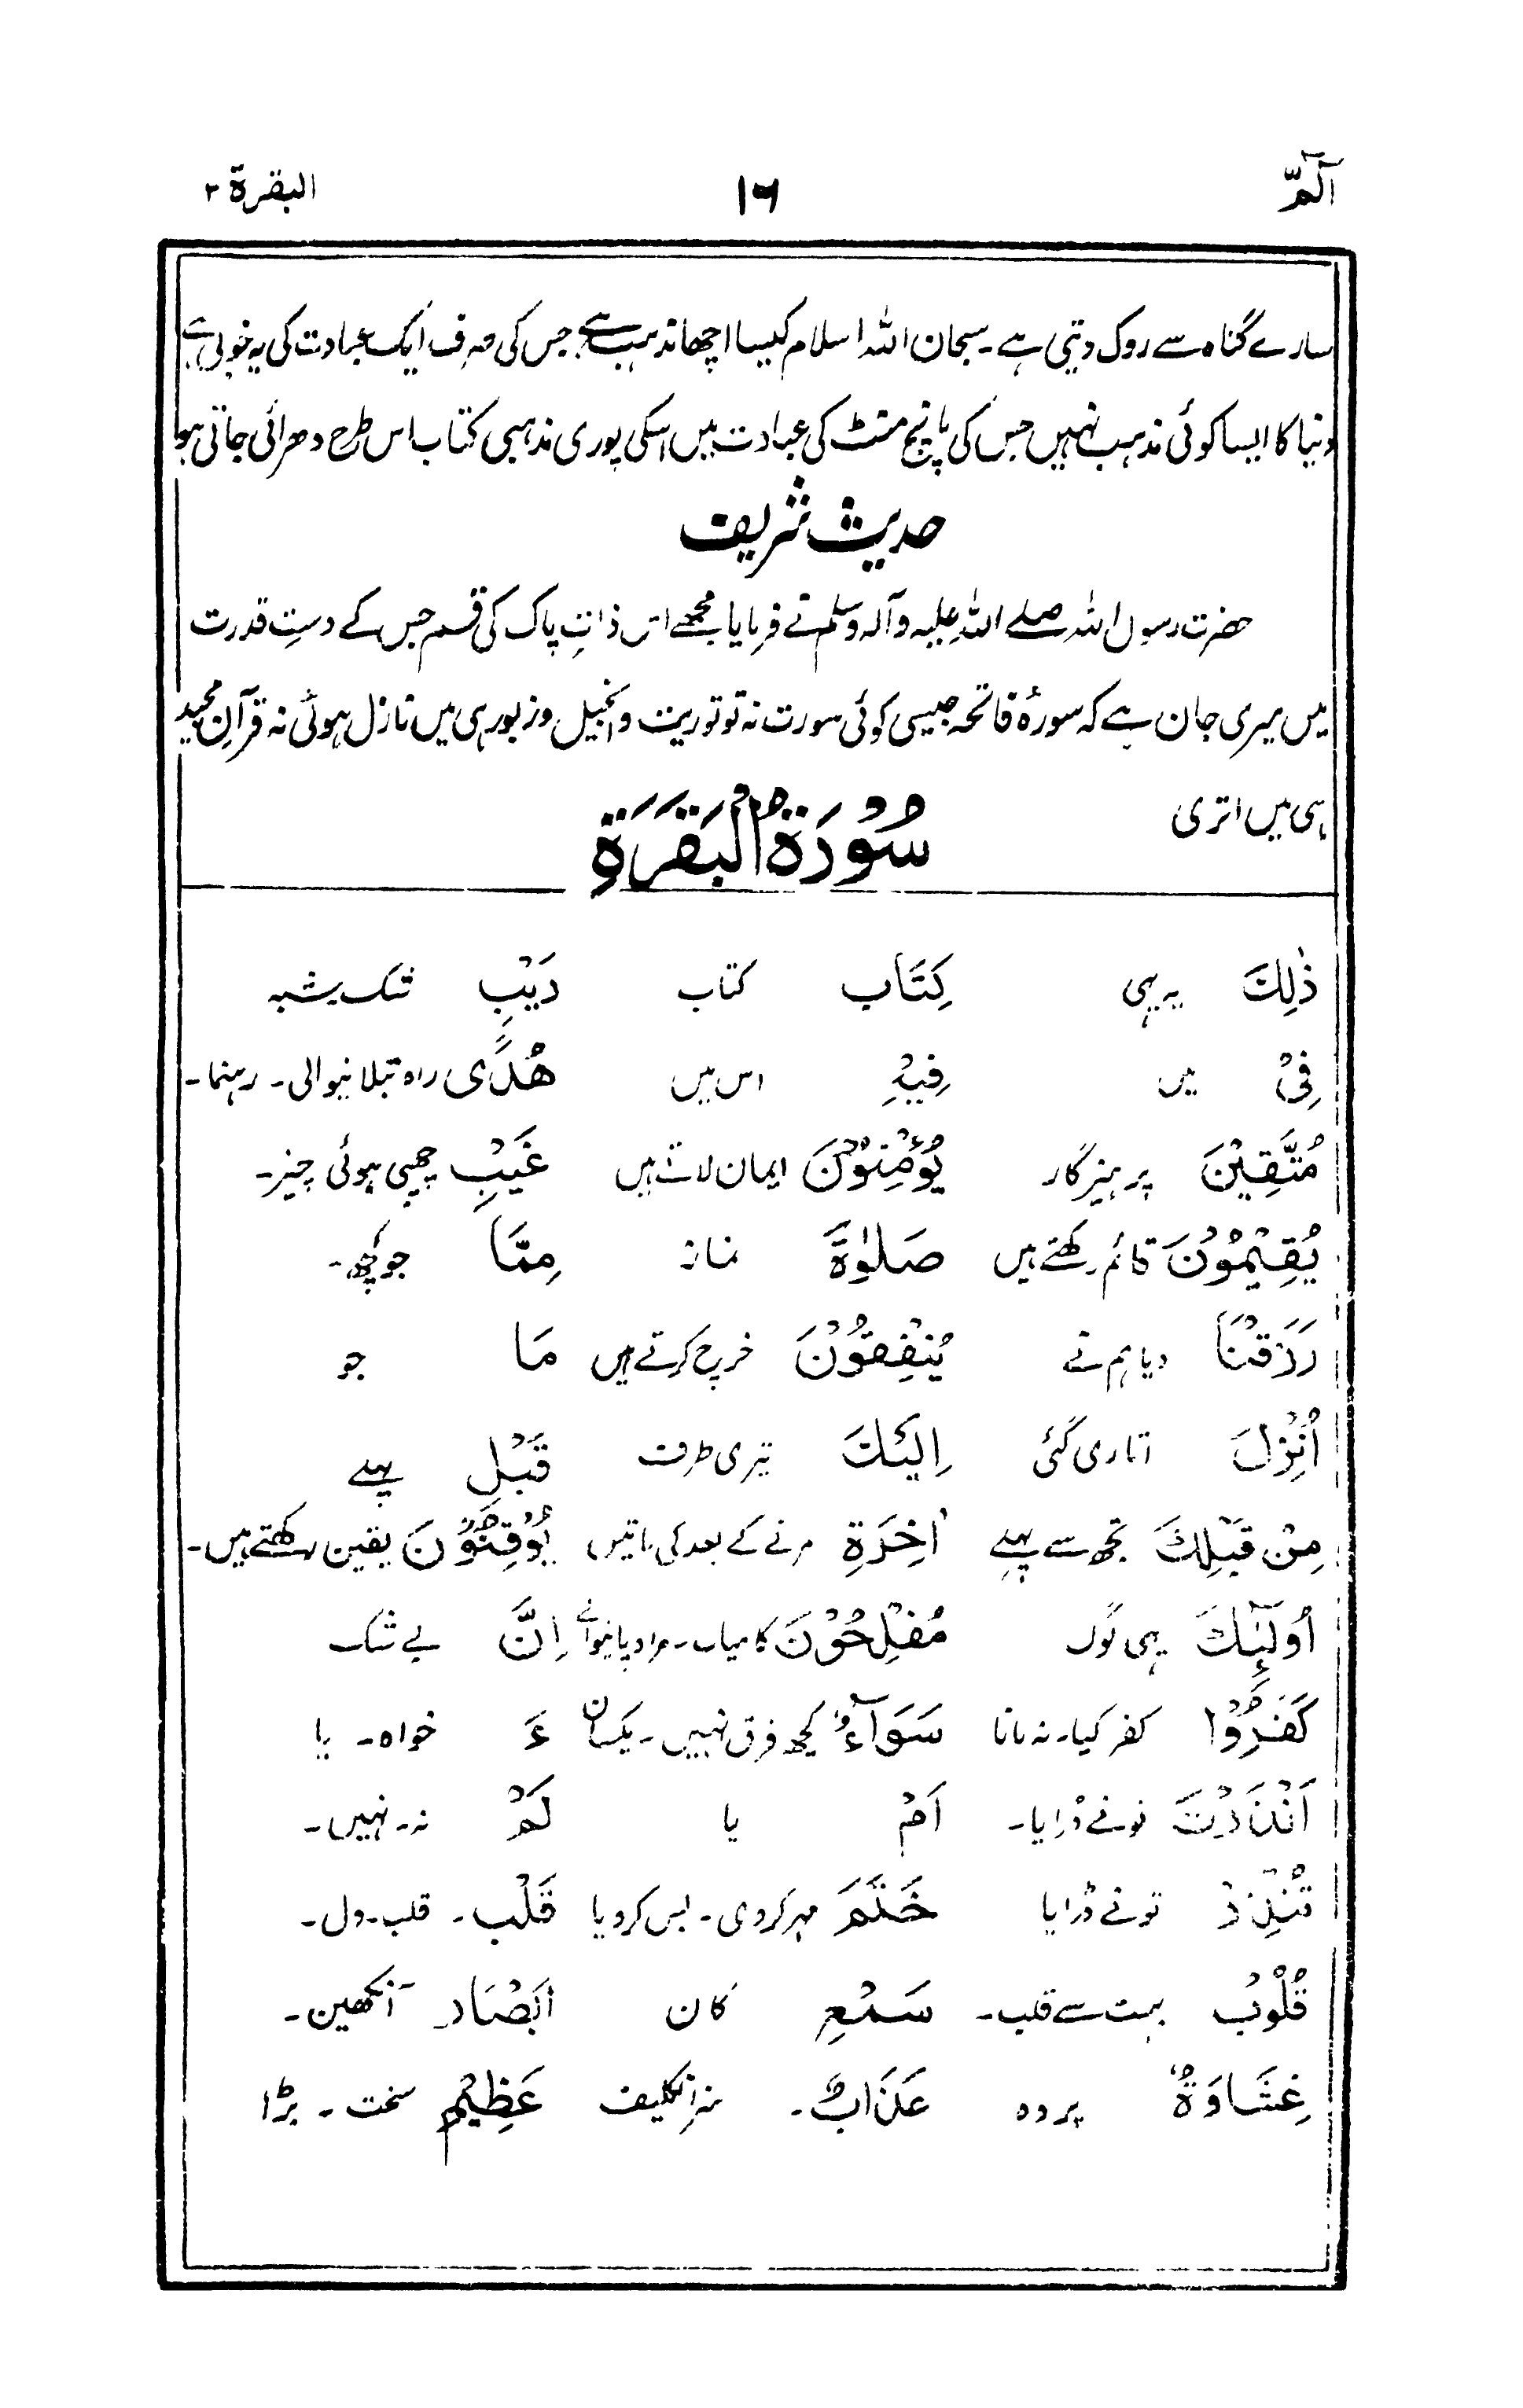 الٓمّٓ ١٦ البقرة ٢
سارے گناہ سے روک دیتی ہے۔ سبحان اللہ اسلام کیسا اچھا مذہب ہے جس کی صرف ایک عبادت کی یہ خوبی ہے
دنیا کا ایسا کوئی مذہب نہیں جس کی پانچ منٹ کی عبادت میں اسکی پوری مذہبی کتاب اس طرح دھرائی جاتی ہو
حدیث شریف
حضرت رسول اللہ صلے اللہ علیہ وآلہ وسلم نے فرمایا مجھے اس ذاتِ پاک کی قسم جس کے دستِ قدرت
میں میری جان ہے کہ سورۂ فاتحہ جیسی کوئی سورت نہ تو توریت و انجیل و زبور ہی میں نازل ہوئی نہ قرآنِ مجید
ہی میں اتری
سُوْرَةُ الْبَقَرَةِ
ذٰلِكَ یہ یہی كِتَاب کتاب رَيْبِ شک شبہ
فِىْ میں فِيْهِ اس میں هُدًى راہ بتلانیوالی۔ رہنما۔
مُتَّقِيْنَ پرہیزگار يُؤْمِنُوْنَ ایمان لاتے ہیں غَيْبِ چھپی ہوئی چیز۔
يُقِيْمُوْنَ قائم رکھتے ہیں صَلٰوةَ نماز مِمَّا جو کچھ۔
رَزَقْنَا دیا ہم نے يُنْفِقُوْنَ خرچ کرتے ہیں مَا جو
اُنْزِلَ اتاری گئی اِلَيْكَ تیری طرف قَبْلِ پہلے
مِنْ قَبْلِكَ تجھ سے پہلے اٰخِرَةِ مرنے کے بعد کی باتیں يُوْقِنُوْنَ یقین رکھتے ہیں۔
اُولٰٓئِكَ یہی لوگ مُفْلِحُوْنَ کامیاب۔ مراد پانیوالے اِنَّ بے شک
كَفَرُوْا کفر کیا۔ نہ مانا سَوَآءٌ کچھ فرق نہیں۔ یکساں ءَ خواہ۔ یا
اَنْذَرْتَ تونے ڈرایا۔ اَمْ یا لَمْ نہ۔ نہیں۔
تُنْذِرْ تونے ڈرایا خَتَمَ مہر کردی۔ بس کردیا قَلْب۔ قلب۔ دل۔
قُلُوْبُ بہت سے قلب۔ سَمْعِ کان اَبْصَار آنکھیں۔
غِشَاوَةٌ پردہ عَذَابٌ۔ سزا تکلیف عَظِيْم سخت۔ بڑا